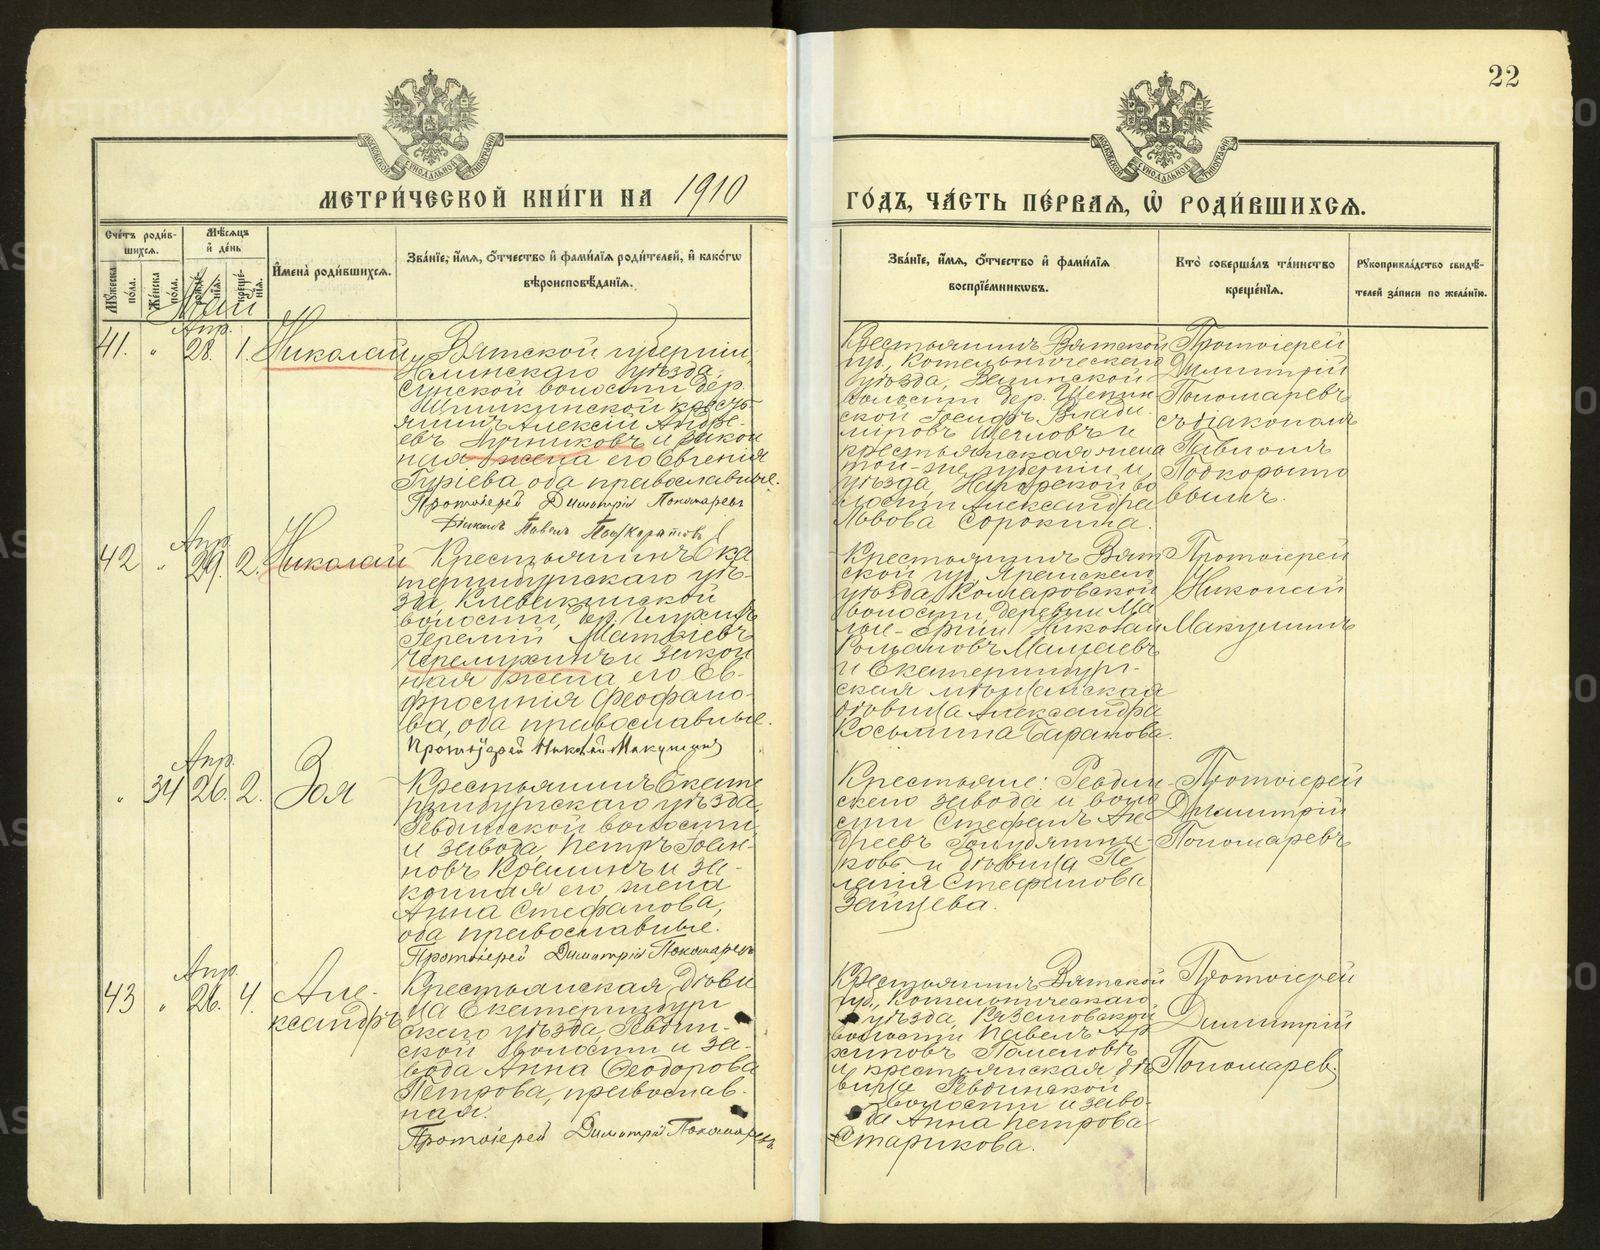 22
МОСКОВСКОЙ СѴНОДАЛЬНОЙ ТИПОГРАФІИ
МОСКОВСКОЙ СѴНОДАЛЬНОЙ ТИПОГРАФІИ
МЕТРИ́ЧЕСКОЙ КНИ́ГИ НА 1910
ГО́ДЪ, ЧА́СТЬ ПЕ́РВАЯ, Ѡ҆ РОДИ́ВШИХСЯ.
Сче́тъ роди́в-
шихся.
Му́жеска по́ла.
Же́нска по́ла.
Мѣ́сяцъ
и҆ де́нь
рожде́нія.
креще́нія.
И҆мена̀ роди́вшихся.
Зва́ніе, и҆́мя, ѻ҆́тчество и҆ фами́лія роди́телей, и҆ како́гѡ
вѣроисповѣ́данія.
Зва́ніе, и҆́мя, ѻ҆́тчество и҆ фами́лія
воспріе́мниковъ.
Кто̀ соверша́лъ та́инство
креще́нія.
Рукоприкла́дство свидѣ́-
телей за́писи по жела́нію.
Май
41. „ Апр. 28. 1. Николай
Вятской губерніи,
Нолинскаго уѣзда,
Сунской волости дер.
Шишкинской кресть-
янинъ Алексій Андре-
евъ Лучниковъ и закон
ная жена его Евгенія
Гуріева оба православные.
Протоіерей Димитрій Пономаревъ
Діаконъ Павелъ Подкорытовъ
Крестьянинъ Вятской
губ., Котельническаго
уѣзда,
волости дер. Щепин
ской Іосифъ Влади
міровъ Щегловъ и
крестьянская жена
той-же губерніи и
уѣзда, во
лости Александра
Львова Сорокина.
Протоіерей
Димитрій
Пономаревъ
съ діакономъ
Павломъ
Подкорыто
вымъ.
42 „ Апр. 29. 2. Николай
Крестьянинъ Ека
теринбургскаго уѣз-
зда, Клевакинской
волости, дер.
Іеремій Матвѣевъ
Черемухинъ и закон
ная жена его Ев-
фросинія Феофано-
ва, оба православные.
Протоіерей Николай Макушинъ
Крестьянинъ Вят
ской губ, Яранскаго
уѣзда, Комаровской
волости, деревни Ма
Николай
Романовъ Мамаевъ
и Екатеринбург-
ская мѣщанская
дѣвица Александра
Косьмина Баранова.
Протоіерей
Николай
Макушинъ
„ 34 Апр. 26. 2. Зоя
Крестьянинъ Екате
ринбургскаго уѣзда,
Ревдинской волости
и завода Петръ Іоан-
новъ Кралинъ и за-
конная его жена
Анна Стефанова,
оба православные.
Протоіерей Димитрій Пономаревъ
Крестьяне: Ревдин
скаго завода и воло
сти Стефанъ Ан
дреевъ Голубятни-
ковъ и дѣвица Пе
лагія Стефанова
Зайцева.
Протоіерей
Димитрій
Пономаревъ
43 „ Апр. 26. 4. Але-
ксандръ
Крестьянская дѣви
ца Екатеринбург
скаго уѣзда, Ревдин-
ской волости и за-
вода Анна Феодорова
Петрова, православ-
ная.
Протоіерей Димитрій Пономаревъ
Крестьянинъ Вятской
губ., Котельническаго
уѣзда,
волости Павелъ Ар
хиповъ
и крестьянская дѣ
вица Ревдинской
волости и заво-
да Анна Петрова
Старикова.
Протоіерей
Димитрій
Пономаревъ.
METRIKI.GASO-URAL.RU